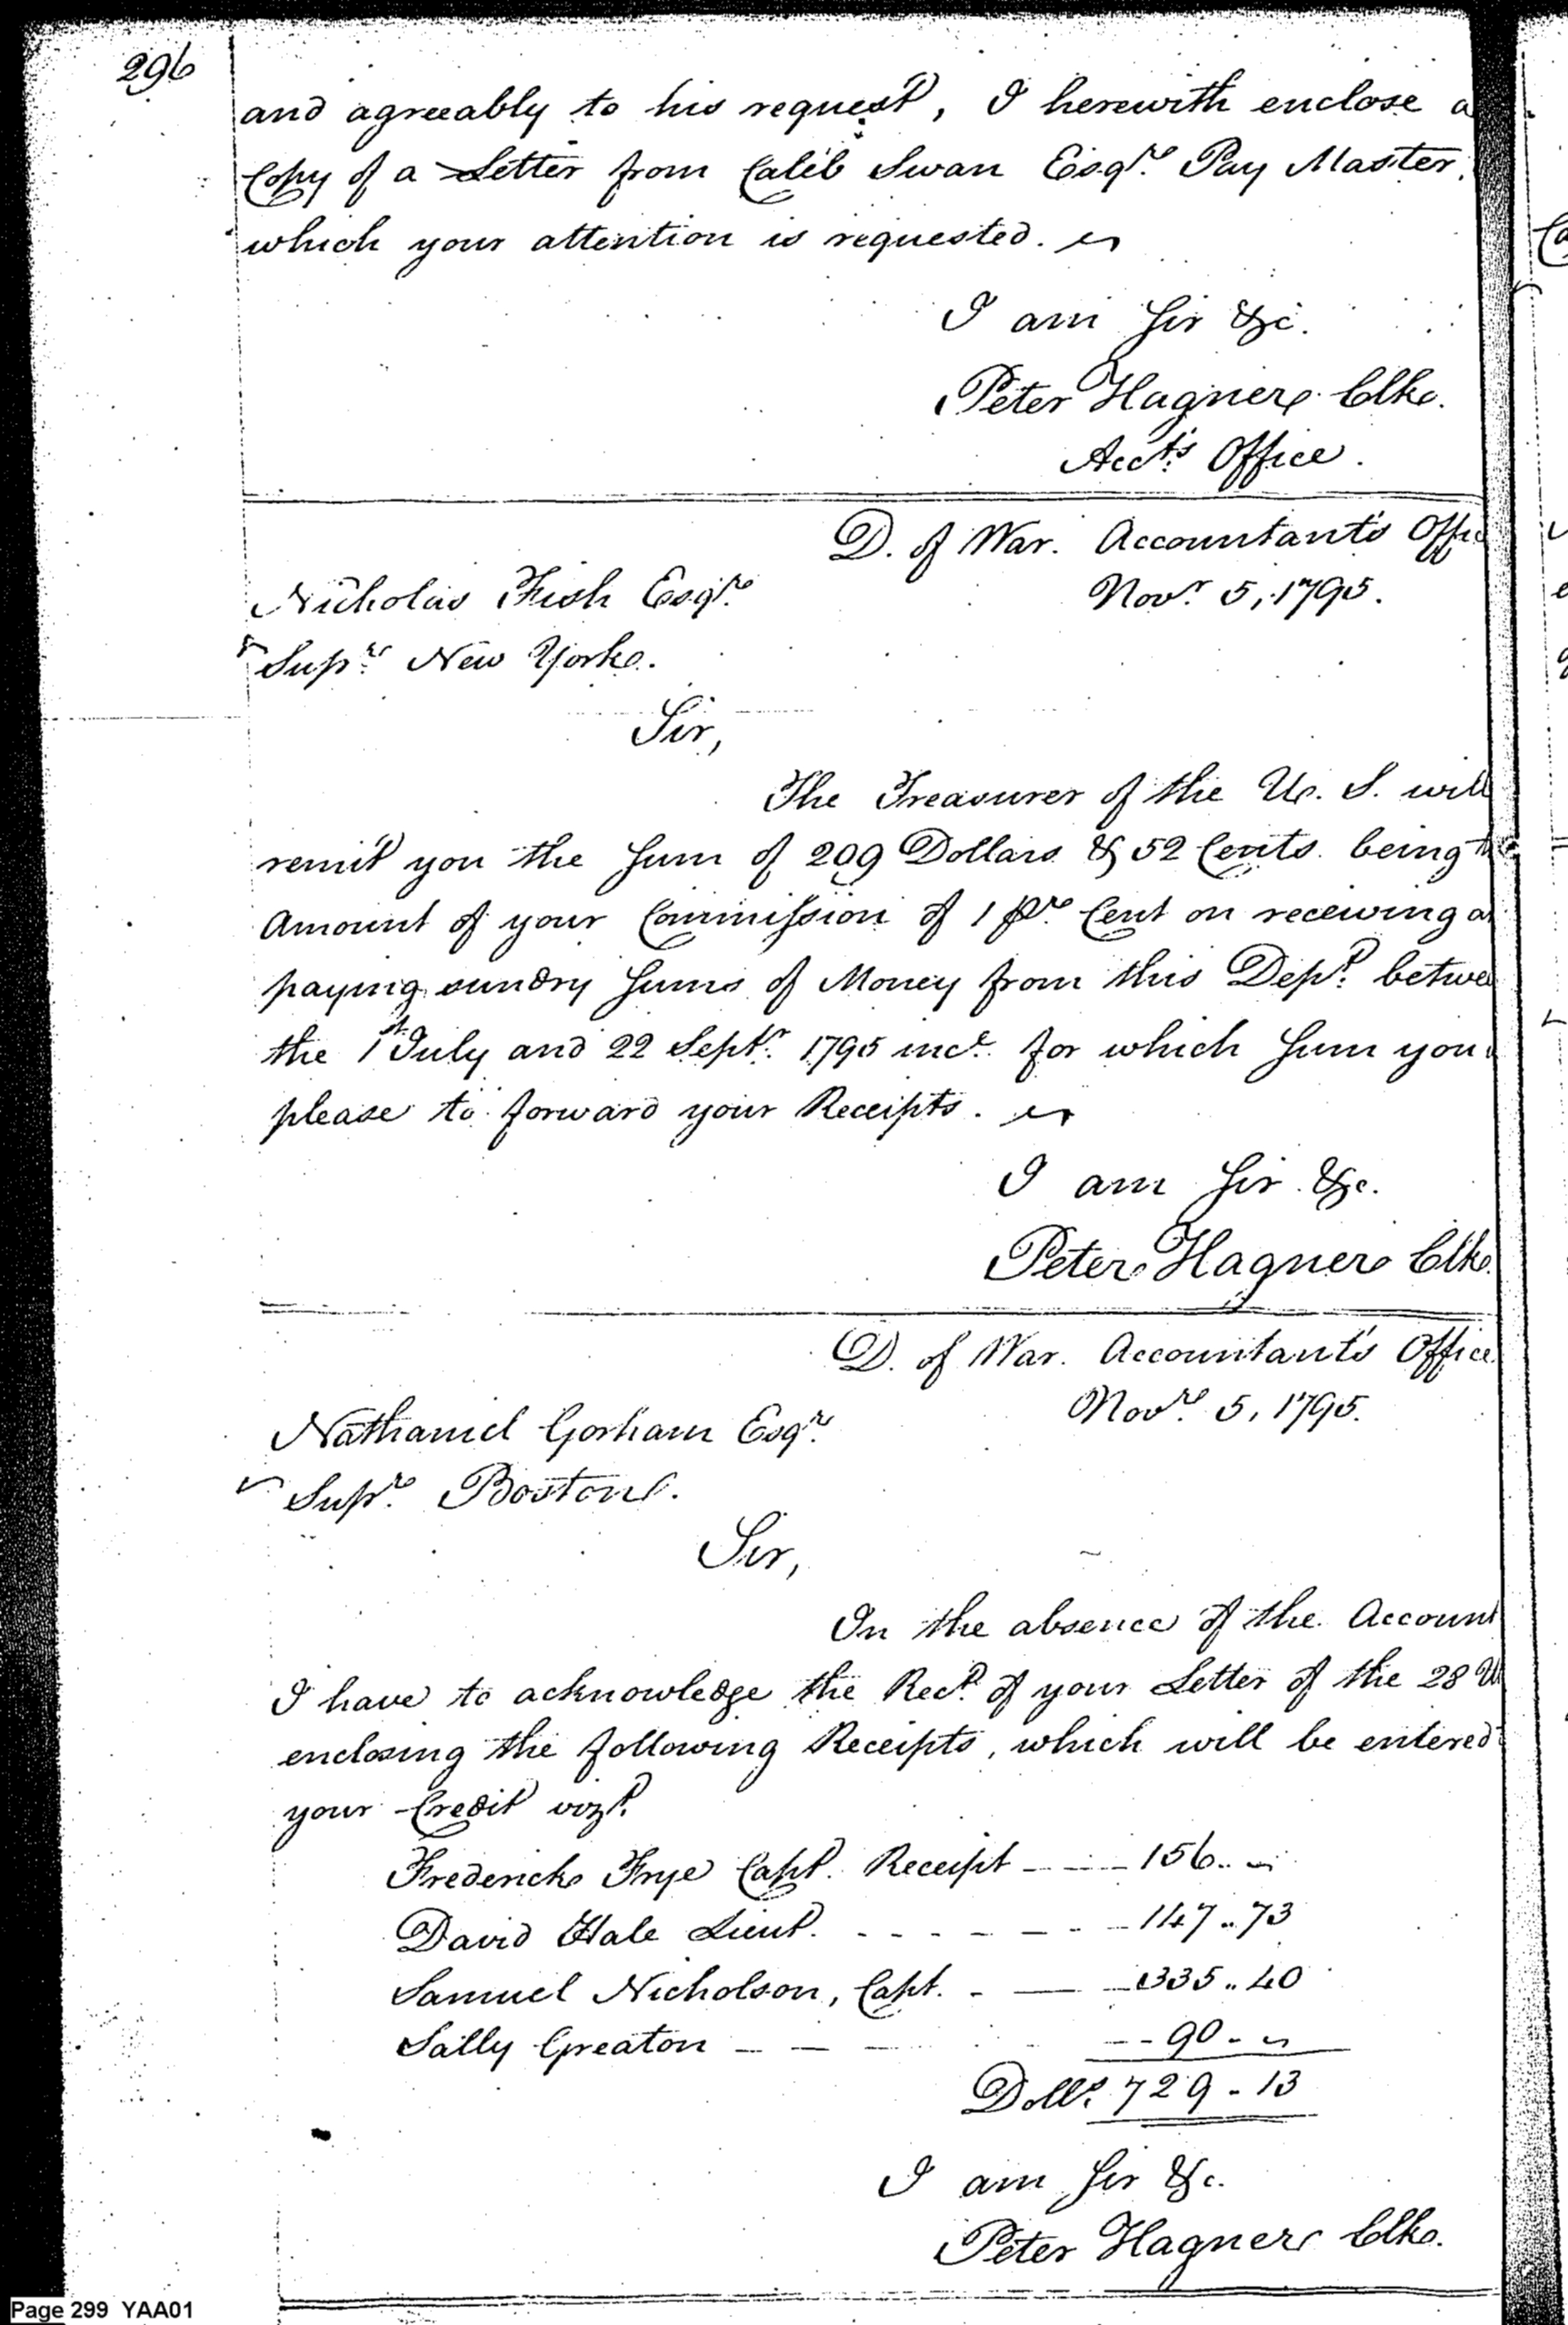 296
and agreeably to his request, I herewith enclose a
Copy of a Letter from Caleb Swan Esqre. Pay Master,
which your attention is requested.
I am Sir &c.
Peter Hagner Clk.
Acct's Office.
D. of War. Accountant's Offic
Novr. 5, 1795.
Nicholas Fish Esqre.
Supre. New York.
Sir,
The Treasurer of the U. S. will
remit you the Sum of 209 Dollars & 52 Cents being th
Amount of your Commission of 1 pr. Cent on receiving a
paying sundry Sums of Money from this Dept. betwe
the 1st July and 22 Septr. 1795 incl. for which Sum you
please to forward your Receipts.
I am Sir &c.
Peter Hagner Clk.
D. of War. Accountant's Office
Novr. 5, 1795.
Nathaniel Gorham Esqr.
Supre. Boston.
Sir,
In the absence of the Account
I have to acknowledge the Rect. of your Letter of the 28 Ul
enclosing the following Receipts, which will be entered
your Credit vizt.
Frederick Frye Capt. Receipt 156..
David Hale Lieut. 147..73
Samuel Nicholson, Capt. 335..40
Sally Greaton 90
Dolls. 729-13
I am Sir &c.
Peter Hagner Clk.
Page 299 YAA01